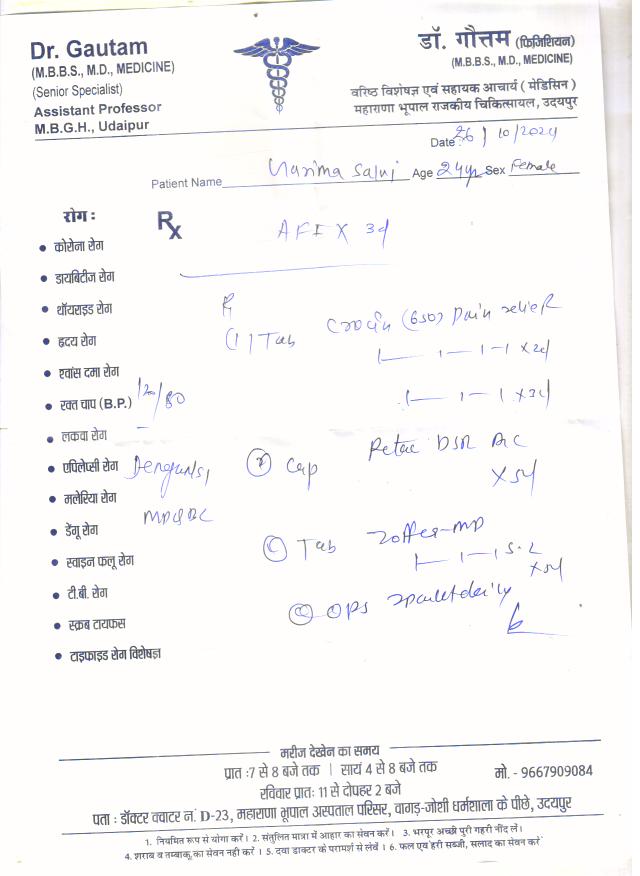 Dr. Gautam
(M.B.B.S., M.D., MEDICINE)
(Senior Specialist)
Assistant Professor
M.B.G.H., Udaipur
डॉ. गौत्तम (फिजिशियन)
(M.B.B.S., M.D., MEDICINE)
वरिष्ठ विशेषज्ञ एवं सहायक आचार्य ( मेडिसिन )
महाराणा भूपाल राजकीय चिकित्सायल, उदयपुर
Date : 26 / 10/2024
Patient Name Age 24yr Sex Female
रोग :
Rx
AFI X 3d
कोरोना रोग
डायबिटीज रोग
थॉयराइड रोग
(1) Tab Crocin (650) Pain relief
ह्रदय रोग
1 — 1 — 1 X 2d
श्वांस दमा रोग
रक्त चाप (B.P.) 120/80
1 — 1 X 3d
लकवा रोग
एपिलेप्सी रोग Dengue NS1
Cap DSR
X 5d
मलेरिया रोग
डेंगू रोग
Tab Zoffer-MD
X 5d
स्वाइन फलू रोग
टी.बी. रोग
ORS
स्क्रब टायफस
टाइफाइड रोग विशेषज्ञ
मरीज देखेन का समय
प्रात :7 से 8 बजे तक | सायं 4 से 8 बजे तक
रविवार प्रातः 11 से दोपहर 2 बजे
मो. - 9667909084
पता : डॉक्टर क्वाटर नं. D-23, महाराणा भूपाल अस्पताल परिसर, वागड़-जोशी धर्मशाला के पीछे, उदयपुर
1. नियमित रूप से योगा करें । 2. संतुलित मात्रा में आहार का सेवन करें । 3. भरपूर अच्छी पुरी गहरी नींद लें ।
4. शराब व तम्बाकू का सेवन नही करें । 5. दवा डाक्टर के परामर्श से लेवें । 6. फल एवं हरी सब्जी, सलाद का सेवन करें